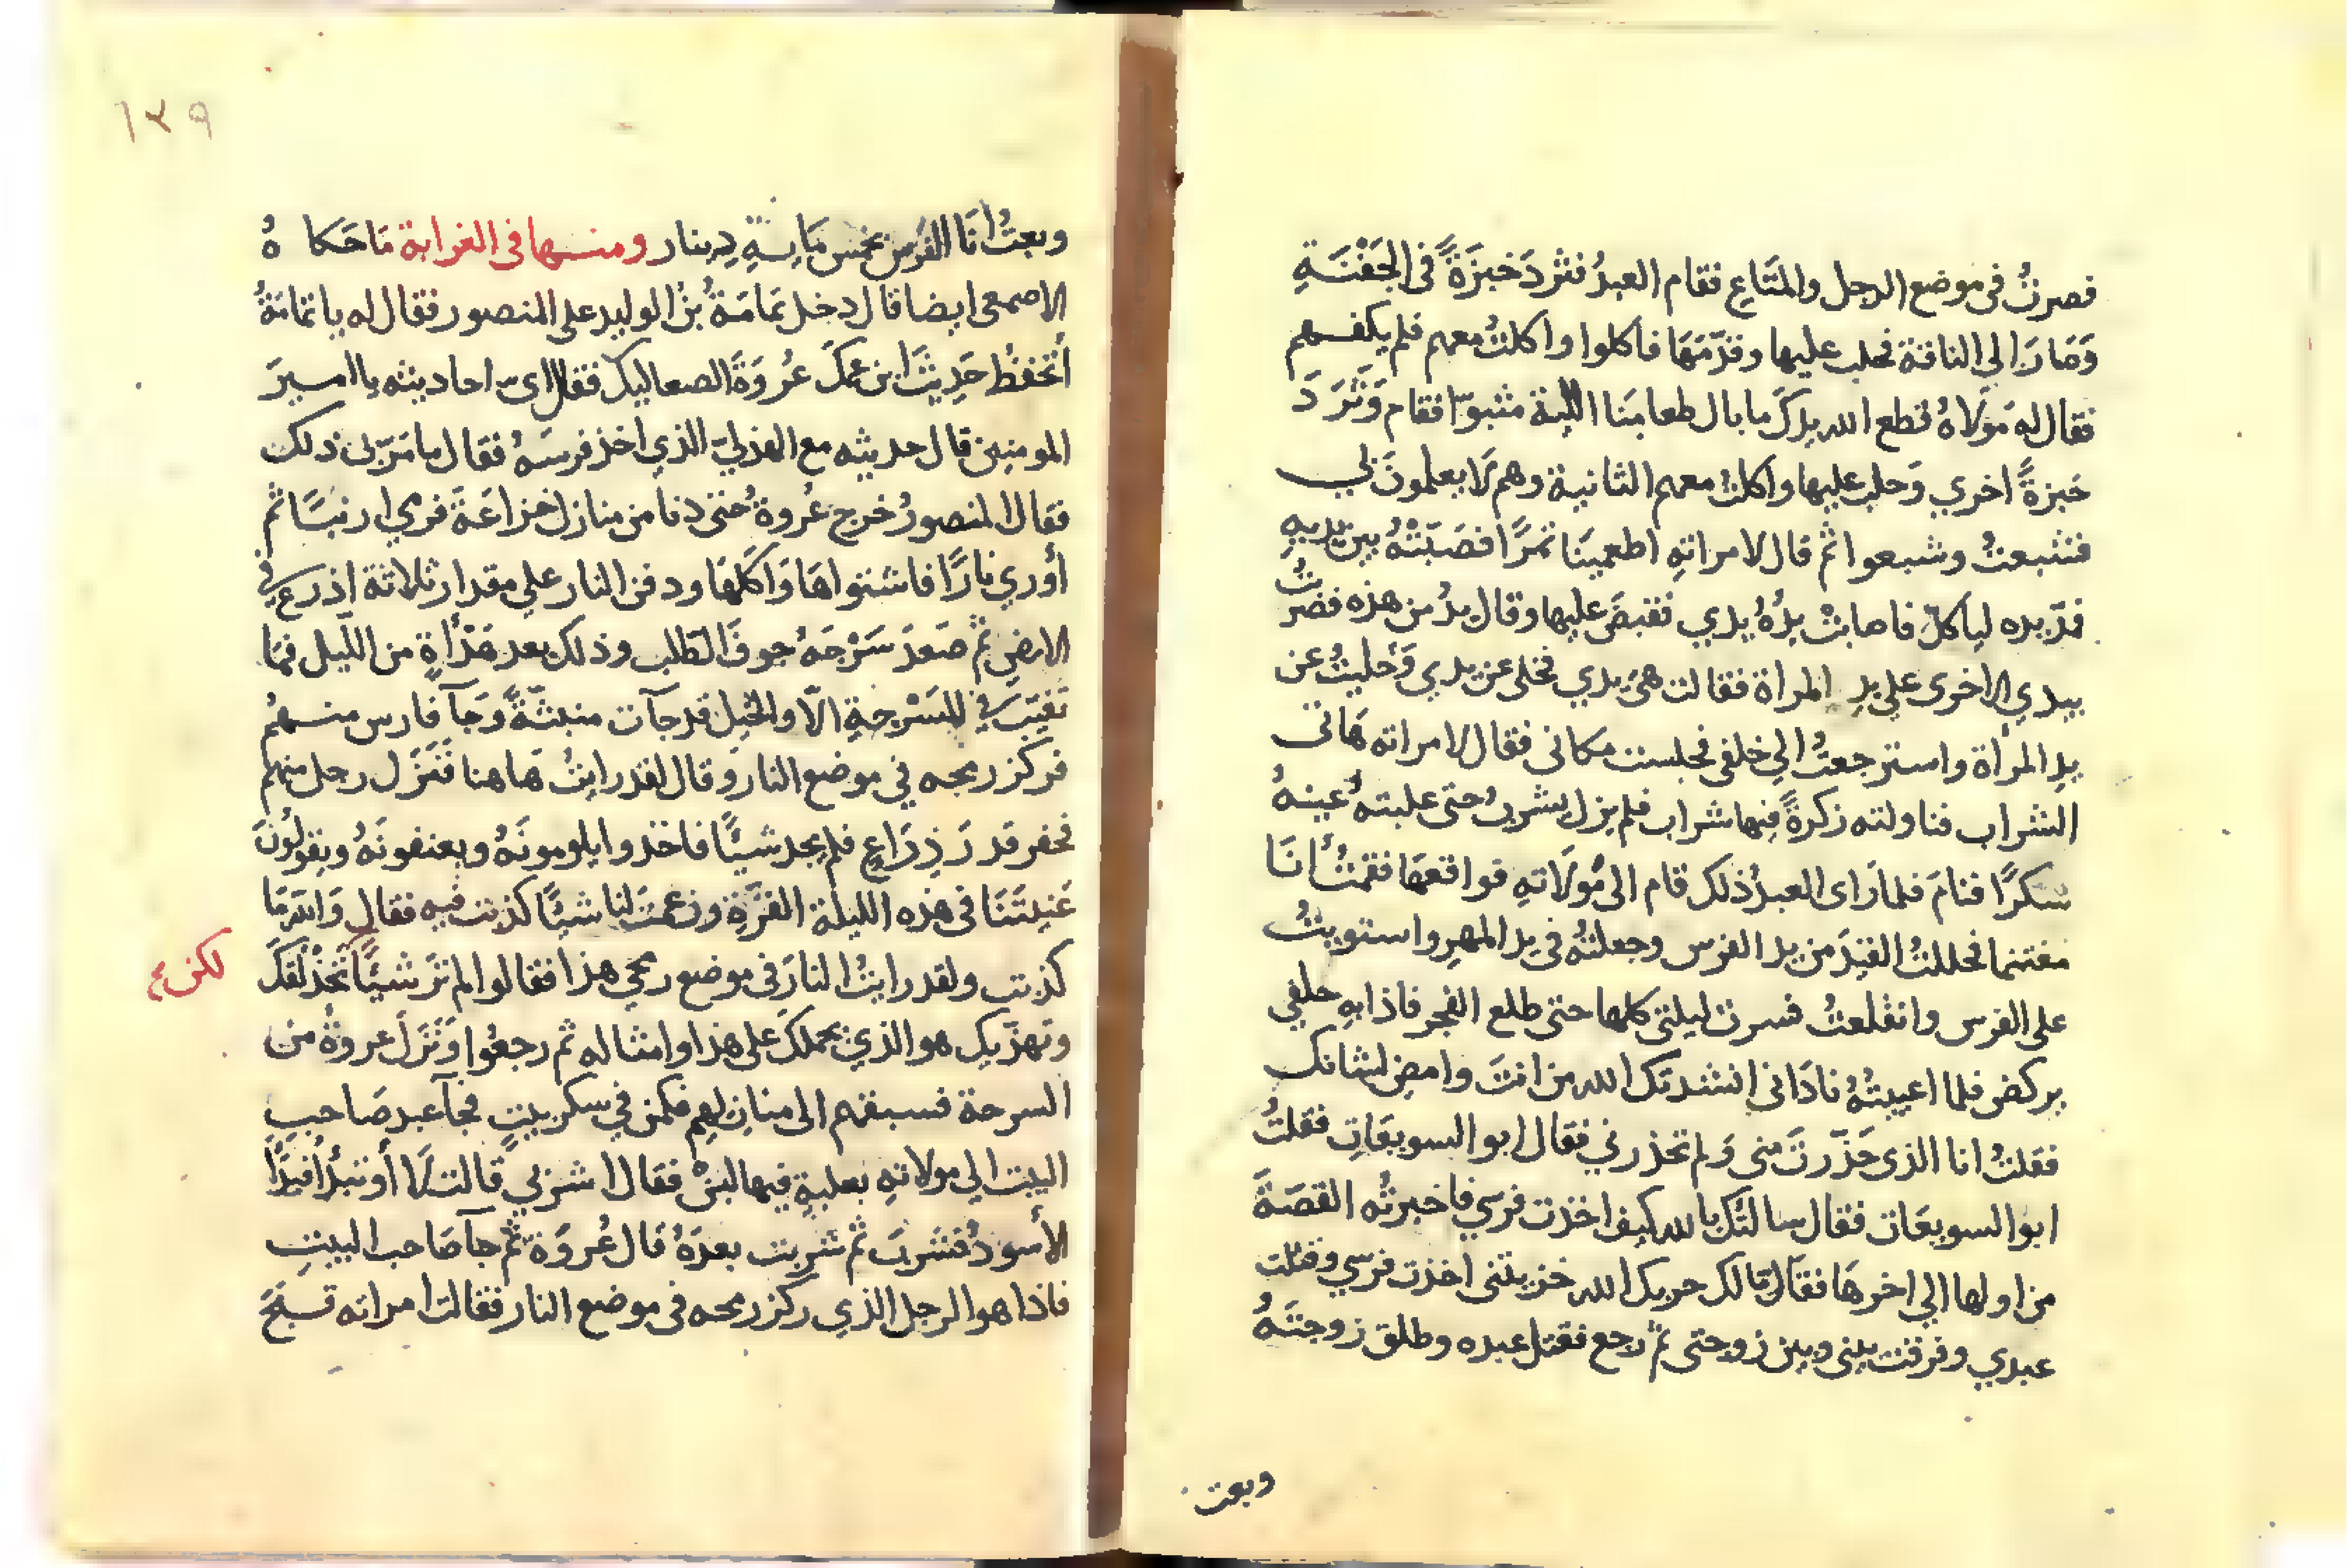 فصرتُ في موضع الرجل والمتَاع فقام العبدُ فثردَ خبزَةً في الجَفْنَةِ
وَصَارَ الي الناقة فحلب عليها وقدّمَهَا فاكلوا واكلتُ معهم فلم يكفهم
فقال له مَولَاهُ قطع الله يدكَ ما بال طعامنا الليلة فقام وَثَرَدَ
خبزةً اخري وَحلب عليها واكلتُ معهم الثانية وهم لَا يعلمونَ بي
فشبعتُ وشبعوا ثم قال لامراتهِ اطعمينَا تمرًا فصَبَّتْهُ بين يديهِ
فمدّ يده لياكلَ فاصابتْ يدُهُ يدي فقبضَ عليها وقال يدُ من هذه فضربتُ
بيدي الاخرى علي يدِ المراة فقالت هيَ يدي فخلى عن يدي وَخليتُ عن
يدِ المرأة واسترجعتُ الي خلفي فجلست مكاني فقال لامراته هَاتى
الشراب فناولته زكرةً فيها شراب فلم يزل يشربُ حتى غلبتهُ عينهُ
سكرًا فنامَ فلما رَاى العبدُ ذلك قام الى مَولَاتهِ فواقعهَا فقمتُ أنَا
مغتنما فحللتُ القيدَ من يد الفرس وجعلتُهُ في يد المهرِ واستويتُ
على الفرس وانقلعتُ فسرت ليلتى كلها حتى طلع الفجر فاذا بهِ خلفي
يركض فلما اعييتُهُ نادَاني انشدتك الله من انتَ وامضِ لشانك
فقلتُ انا الذى حَذّرتَ منى وَلم تحذرني فقال ابو السويعَاتِ فقلتُ
ابو السويعَات فقال سالتُكَ بالله كيف اخذت فرَسي فاخبرتُه القصَةَ
من اولها الي اخرهَا فقال مَالك حربك الله خربتنى اخذت فرسي وقتلت
عبدي وفرقت بيني وبين زوجتى ثم رجع فقتل عبده وطلق زوجتَهُ
وبعت
١٣٩
وبعتُ أنَا الفرَس بخمس مَايةِ دِينار ومنها في الغرابة مَا حَكاهُ
الاصمعى ايضا قال دخل ثمَامَةُ بنُ الوليد على المنصور فقال له يا ثمامَةُ
أتحفظُ حَدِيثَ ابن عمكَ عُروَةَ الصعاليك فقال اى احاديثه يا اميرَ
المومنين قال حديثه مع الهذليّ الذي اخذ فرسَهُ فقال ما مَرّ بى ذلك
فقال المنصورُ خرج عُروةُ حتى دنا من منازل خزاعَةَ فرمي ارنبًا ثم
أوري نارًا فاشتواهَا وَاكلهَا ودفن النار علي مقدار ثلاثة اذرع في
الارضِ ثم صَعدَ سَرْحَةً خوفَ الطلب وذلك بعد هَدْأَةٍ من الليل فمَا
تغَيّبَ في السَرْحةِ الّا والخيل قد جآت منبثةً وَجآ فارس منهم
فركز رمحه في موضع النار وَقال لقد رايتُ هَاهنا فَنَزَل رجل منهم
فحفر قدرَ ذِرَاعٍ فلم يجد شيًا فاخذوا يلومونَهُ ويعنفونَهُ ويقولُونَ
عَنيتَنَا في هذه الليلة القَرّةِ وزعمتَ لنا شيئًا كذبت فيه فقال وَاللهِ مَا
كذبت ولقد رايتُ النارَ في موضع رمحي هذا فقالوا لم نرَ شيًا تحَذْلقكَ لكن
وتهدّيك هو الذي يحملكَ على هذا وامثاله ثم رجعُوا وَنَزَلَ عروةُ من
السرحة فسبقهم الى منازلهم فكمن في سكر بيتٍ فجآ عبد صَاحب
البيت الي مولاتهِ بعلبةٍ فيها لبن فقال اشربي قالت لَا أو تبدُأ فبَدَأ
الأسودُ فشربَ ثم شربت بعدَهُ قال عُروَة ثم جآ صَاحب البيتِ
فاذا هو الرجل الذي ركز رمحه في موضع النار فقالت امراته